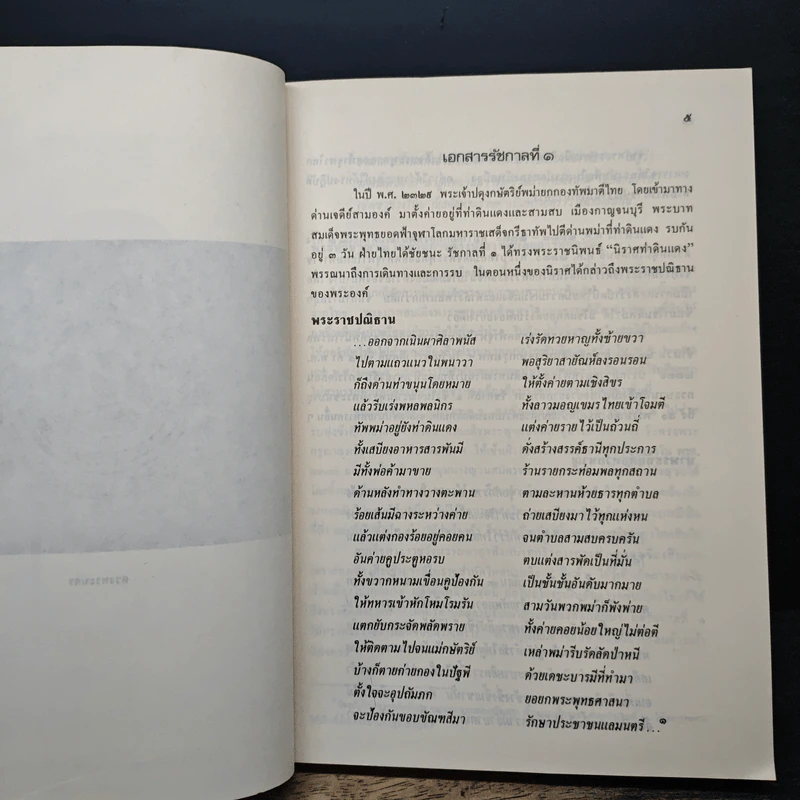 ๕
เอกสารรัชกาลที่ ๑
ในปี พ.ศ. ๒๓๒๙ พระเจ้าปดุงกษัตริย์พม่ายกกองทัพมาตีไทย โดยเข้ามาทาง
ด่านเจดีย์สามองค์ มาตั้งค่ายอยู่ที่ท่าดินแดงและสามสบ เมืองกาญจนบุรี พระบาท
สมเด็จพระพุทธยอดฟ้าจุฬาโลกมหาราชเสด็จกรีธาทัพไปตีด่านพม่าที่ท่าดินแดง รบกัน
อยู่ ๓ วัน ฝ่ายไทยได้ชัยชนะ รัชกาลที่ ๑ ได้ทรงพระราชนิพนธ์ “นิราศท่าดินแดง”
พรรณนาถึงการเดินทางและการรบ ในตอนหนึ่งของนิราศได้กล่าวถึงพระราชปณิธาน
ของพระองค์
พระราชปณิธาน
...ออกจากเนินผาศิลาพนัส เร่งรัดทวยหาญทั้งซ้ายขวา
ไปตามแถวแนวในพนาวา พอสุริยาสายัณห์ลงรอนรอน
ก็ถึงด่านท่าขนุนโดยหมาย ให้ตั้งค่ายตามเชิงสิขร
แล้วรีบเร่งพหลพลนิกร ทั้งลาวมอญเขมรไทยเข้าโจมตี
ทัพพม่าอยู่ยังท่าดินแดง แต่งค่ายรายไว้เป็นถ้วนถี่
ทั้งเสบียงอาหารสารพันมี ดั่งสร้างสรรค์ธานีทุกประการ
มีทั้งพ่อค้ามาขาย ร้านรายกระท่อมพลทุกสถาน
ด้านหลังทำทางวางตะพาน ตามละหานห้วยธารทุกตำบล
ร้อยเส้นมีฉางระหว่างค่าย ถ่ายเสบียงมาไว้ทุกแห่งหน
แล้วแต่งกองร้อยอยู่คอยคน จนตำบลสามสบครบครัน
อันค่ายคูประตูหอรบ ตบแต่งสารพัดเป็นที่มั่น
ทั้งขวากหนามเขื่อนคูป้องกัน เป็นชั้นชั้นอันดับมากมาย
ให้ทหารเข้าหักโหมโรมรัน สามวันพวกพม่าก็พังพ่าย
แตกยับกระจัดพลัดพราย ทั้งค่ายคอยน้อยใหญ่ไม่ต่อตี
ให้ติดตามไปจนแม่กษัตริย์ เหล่าพม่ารีบรัดลัดป่าหนี
บ้างก็ตายก่ายกองในปัฐพี ด้วยเดชะบารมีที่ทำมา
ตั้งใจจะอุปถัมภก ยอยกพระพุทธศาสนา
จะป้องกันขอบขัณฑสีมา รักษาประชาชนแลมนตรี...๑